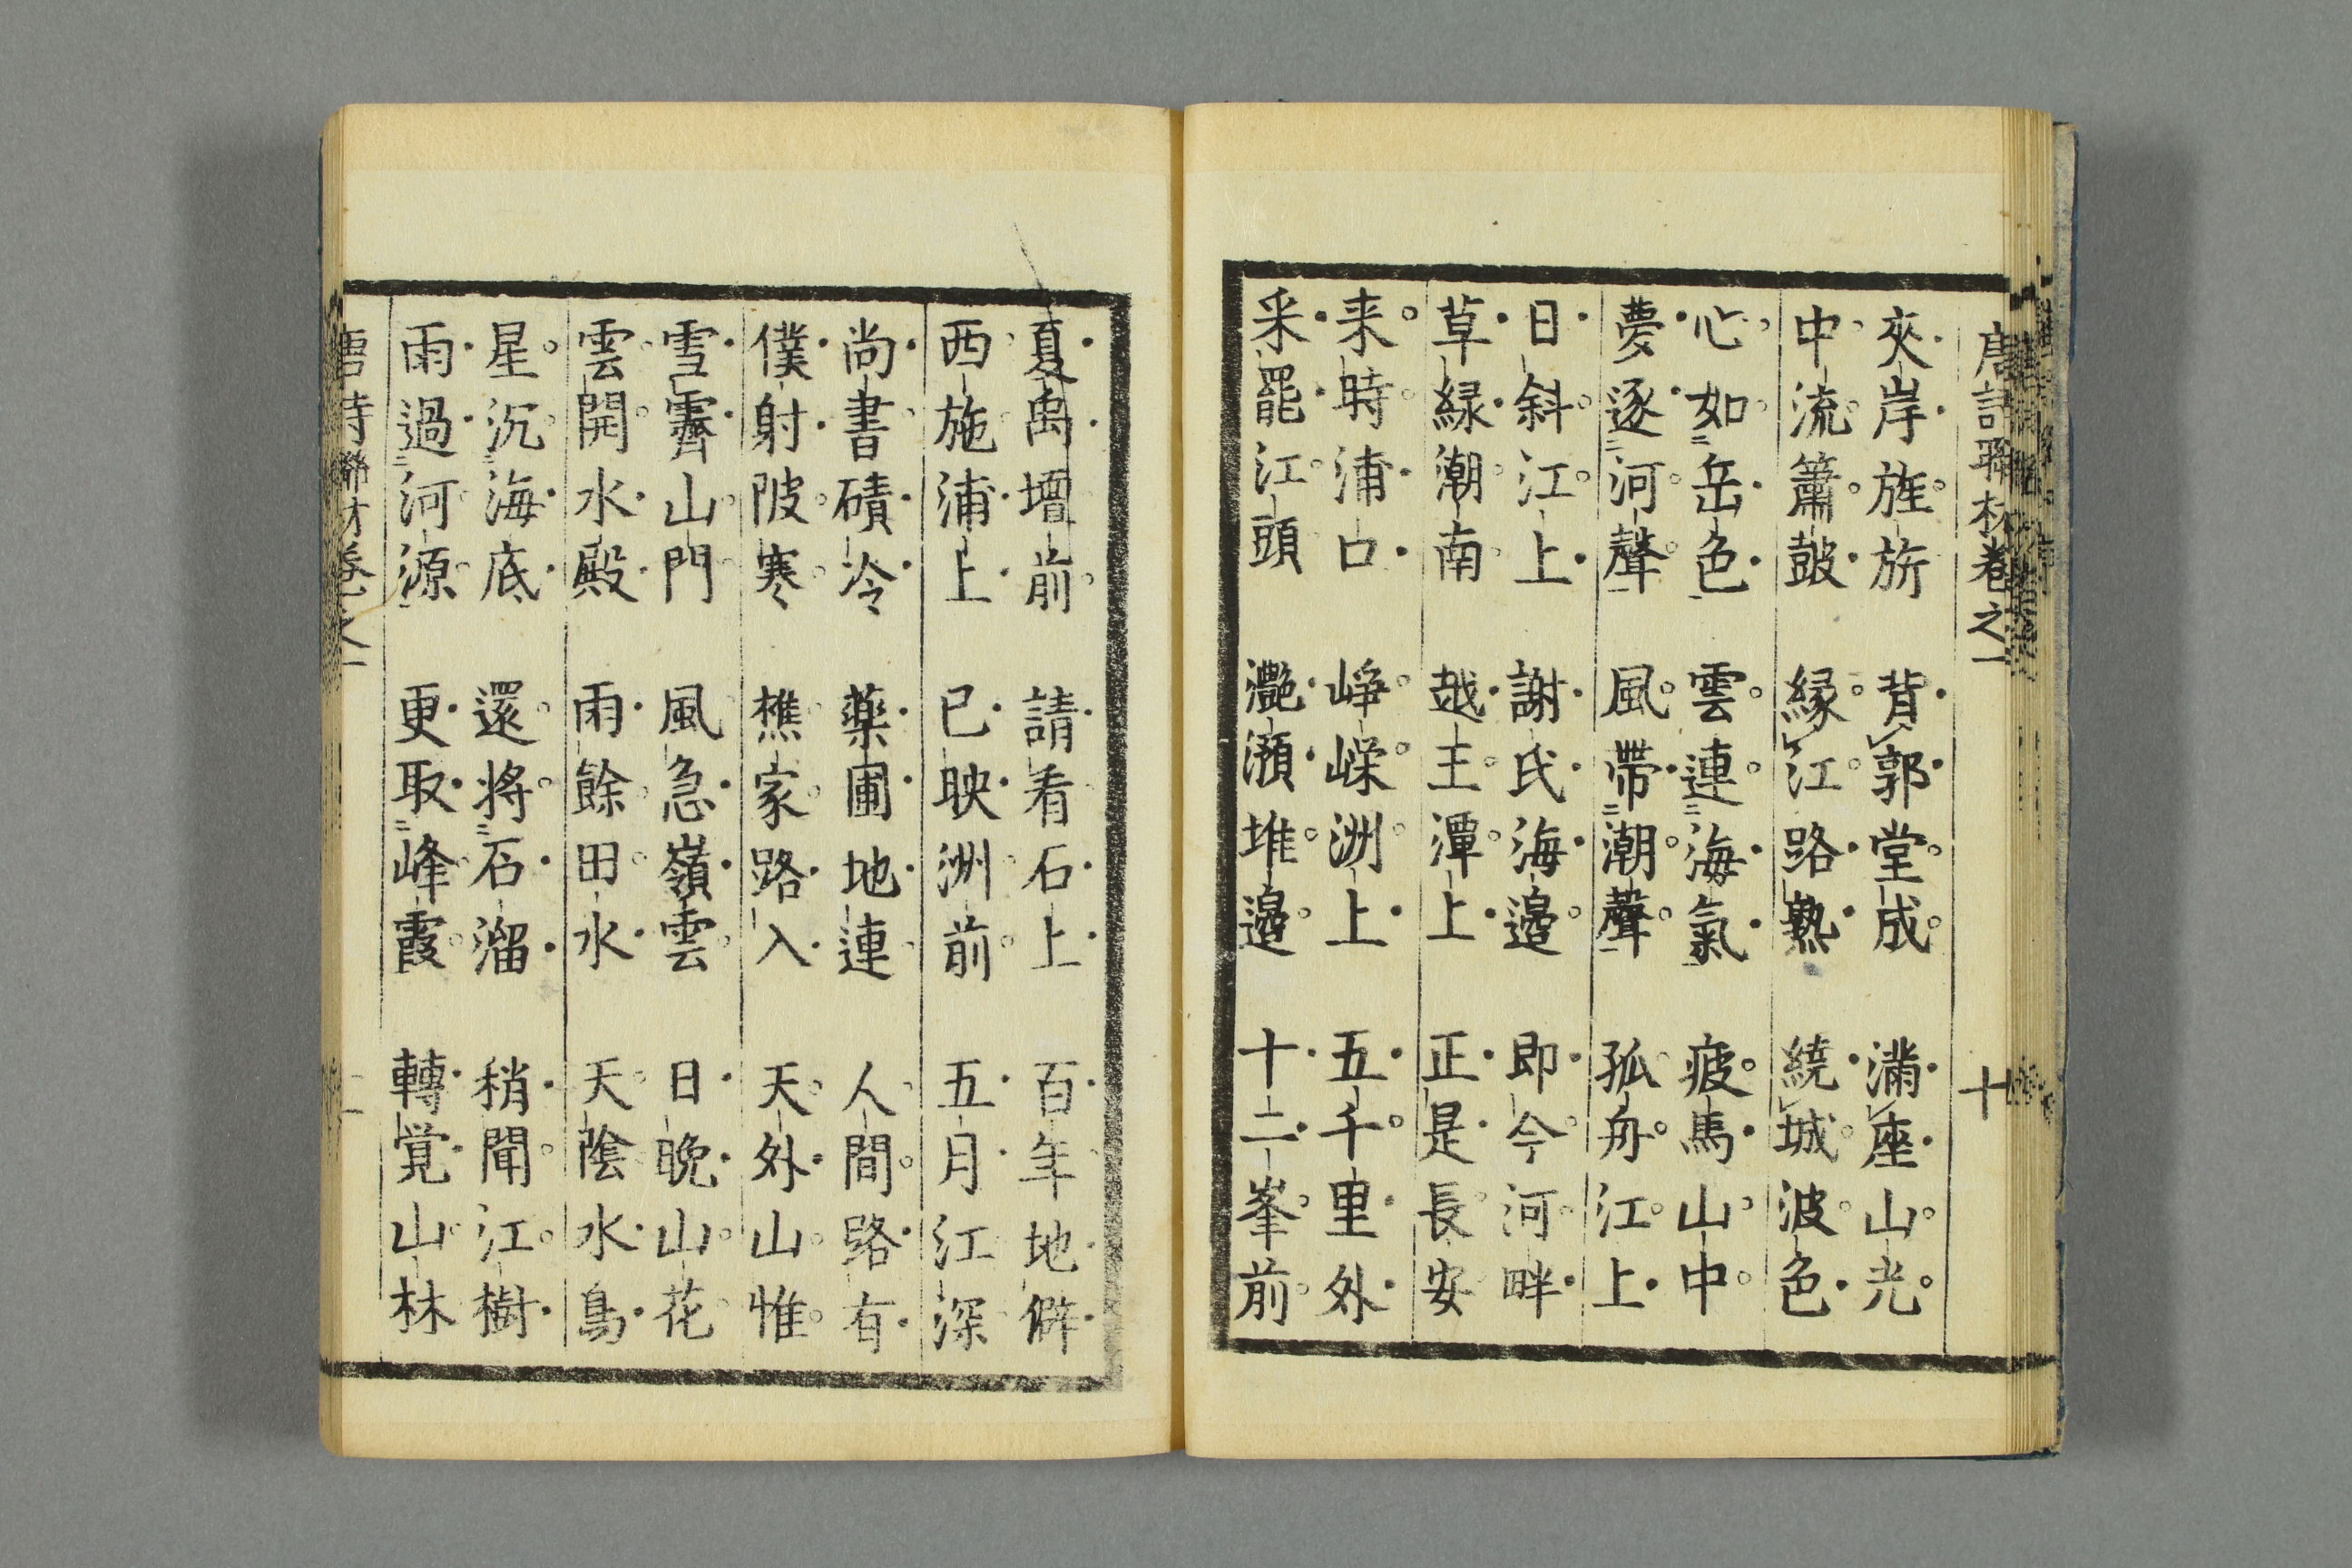 唐詩聯材卷之一 十
夾岸旌旂 背郭堂成 滿座山光
中流簫鼓 縁江路熟 繞城波色
心如岳色 雲連海氣 疲馬山中
夢逐河聲 風帶潮聲 孤舟江上
日斜江上 謝氏海邉 即今河畔
草緑潮南 越王潭上 正是長安
来時浦口 崢嶸洲上 五千里外
采罷江頭 灔澦堆邉 十二峯前
夏禹壇前 請看石上 百年地僻
西施浦上 已映洲前 五月江深
尚書磧冷 藥圃地連 人間路有
僕射陂寒 樵家路入 天外山惟
雪霽山門 風急嶺雲 日晚山花
雲開水殿 雨餘田水 天陰水鳥
星沉海底 還将石溜 稍聞江樹
雨過河源 更取峰霞 轉覚山林
唐詩聯材卷之一